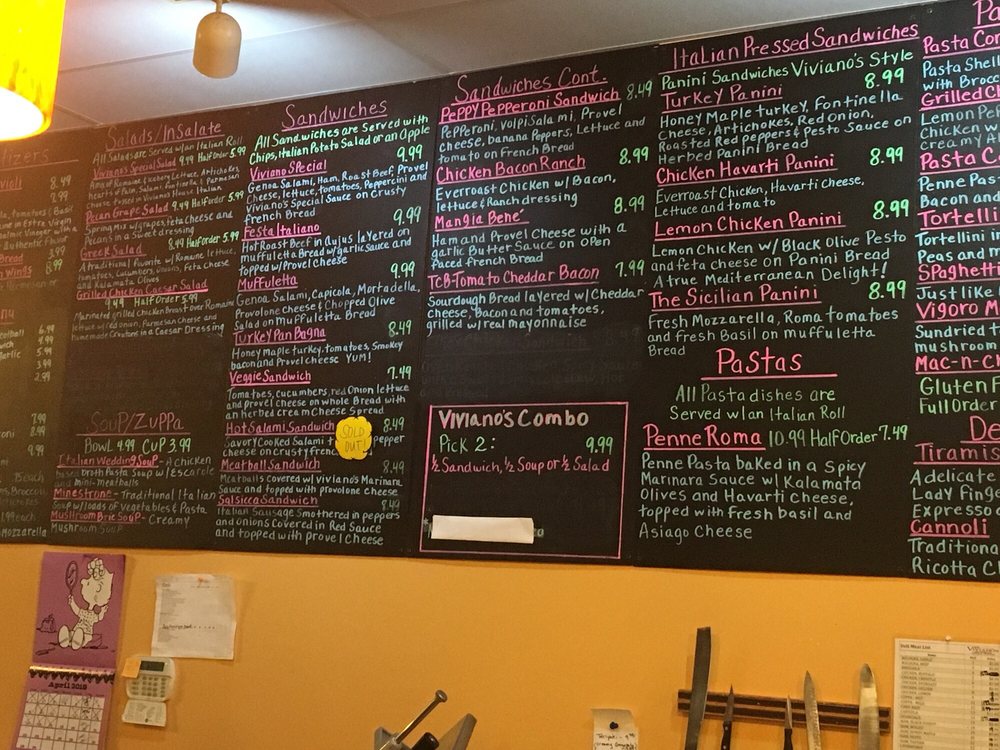 Salads/Insalate
All Salads are Served w/an Italian Roll
Viviano's Special Salad 9.99 Half Order 5.99
Pecan Grape Salad 9.49 Half Order 5.99
Spring Mix w/grapes, feta Cheese and
Pecans in a Sweet dressing
Greek Salad 8.49 Half Order 5.99
A traditional favorite w/Romaine lettuce,
tomatoes, Cucumbers, onions, Feta Cheese
and Kalamata Olives
Grilled Chicken Caesar Salad
9.49 Half Order 5.99
Marinated grilled Chicken Breast over Romaine
lettuce w/red onion, Parmesan Cheese and
homemade Croutons in a Caesar Dressing
Soup/Zuppa
Bowl 4.99 Cup 3.99
Italian Wedding Soup - A Chicken
base with Pasta Soup w/Escarole
and mini-meatballs
Minestrone - Traditional Italian
Soup w/loads of vegetables & Pasta
Mushroom Brie Soup - Creamy
Mushroom Soup
Sandwiches
All Sandwiches are Served with
Chips, Italian Potato Salad or an Apple
Viviano Special 9.99
Genoa Salami, Ham, Roast Beef, Provel
Cheese, lettuce, tomatoes, Pepperoncini and
Viviano's Special Sauce on Crusty
french Bread
Festa Italiano 9.99
Hot Roast Beef in Aujus layered on
muffuletta Bread w/garlic Sauce and
topped w/Provel Cheese
Muffuletta 9.99
Genoa Salami, Capicola, Mortadella,
Provolone Cheese & Chopped Olive
Salad on Muffuletta Bread
Turkey Pan Bagna 8.49
Honey maple turkey, tomatoes, Smokey
bacon and Provel cheese YUM!
Veggie Sandwich 7.49
Tomatoes, cucumbers, red Onion, lettuce
and provel cheese on whole Bread with
an herbed cream Cheese Spread
Hot Salami Sandwich 8.49
Savory Cooked Salami pepper
cheese on crusty french
SOLD
OUT!
Meatball Sandwich 8.49
Meatballs covered w/Viviano's Marinara
Sauce and topped with provolone cheese
Salsiccia Sandwich 8.49
Italian Sausage Smothered in peppers
and Onions Covered in Red Sauce
and topped with provel Cheese
Sandwiches Cont.
Peppy Pepperoni Sandwich 8.49
Pepperoni, Volpi Salami, Provel
Cheese, banana Peppers, lettuce and
tomato on French Bread
Chicken Bacon Ranch 8.99
Everroast Chicken w/ Bacon,
lettuce & Ranch dressing
Mangia Bene' 8.99
Ham and Provel Cheese with a
garlic Butter Sauce on Open
Faced french Bread
TCB-Tomato Cheddar Bacon 7.99
Sourdough Bread layered w/Cheddar
Cheese, Bacon and tomatoes,
grilled w/real mayonnaise
Viviano's Combo
Pick 2: 9.99
½ Sandwich, ½ Soup or ½ Salad
Italian Pressed Sandwiches
Panini Sandwiches Viviano's Style
Turkey Panini 8.99
Honey Maple turkey, Fontinella
Cheese, Artichokes, Red Onion,
Roasted Red peppers & Pesto Sauce on
Herbed Panini Bread
Chicken Havarti Panini 8.99
Everroast Chicken, Havarti Cheese,
Lettuce and tomato
Lemon Chicken Panini 8.99
Lemon Chicken w/ Black Olive Pesto
and feta cheese on Panini Bread
A true Mediterranean Delight!
The Sicilian Panini 8.99
Fresh Mozzarella, Roma tomatoes
and fresh Basil on muffuletta
Bread
Pastas
All Pasta dishes are
Served w/an Italian Roll
Penne Roma 10.99 Half Order 7.49
Penne Pasta baked in a Spicy
Marinara Sauce w/ Kalamata
Olives and Havarti Cheese,
topped with fresh basil and
Asiago Cheese
Pasta
Pasta Shell
with Brocc
Grilled Ch
Lemon Pe
Chicken w
creamy A
Pasta C
Penne Past
Bacon and
Tortelli
Tortellini in
Peas and m
Spaghetti
Just like
Vigoro M
Sundried t
mushroom
Mac-n-Ch
Gluten F
Full Order
De
Tiramis
A delicate
Lady finge
Espresso
Cannoli
Traditiona
Ricotta Ch
April 2018
Deli Meat List